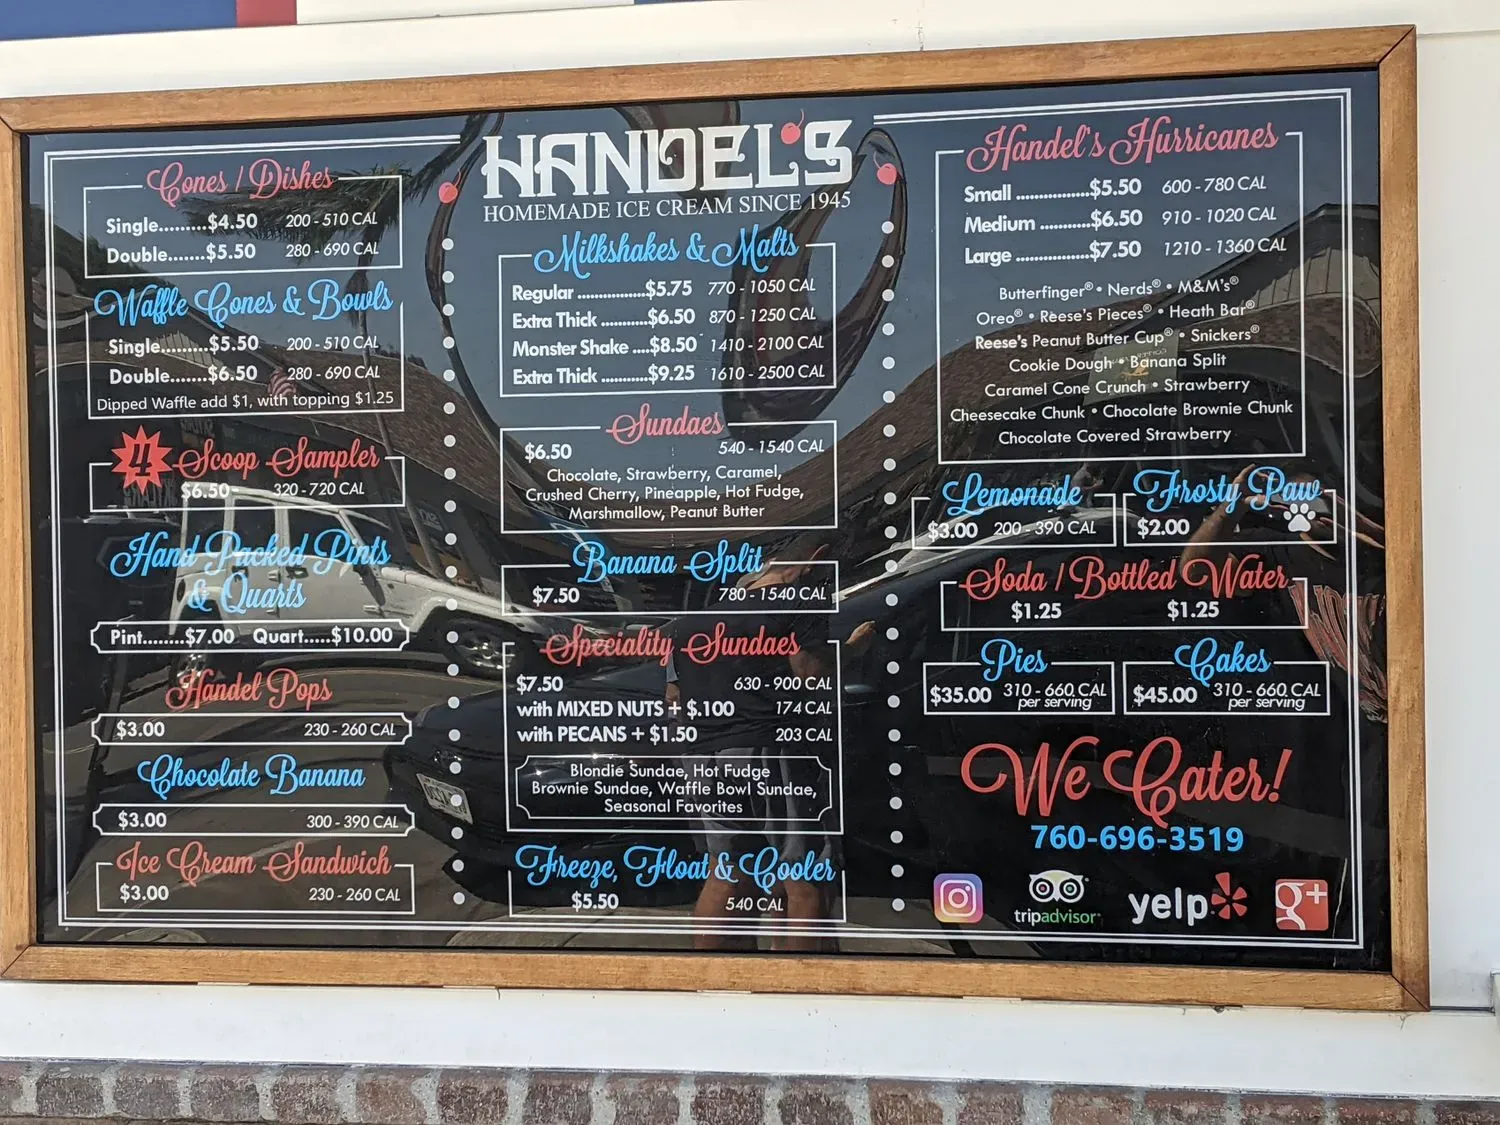 HANDEL'S
HOMEMADE ICE CREAM SINCE 1945
Cones / Dishes
Single.........$4.50 200 - 510 CAL
Double.......$5.50 280 - 690 CAL
Waffle Cones & Bowls
Single.........$5.50 200 - 510 CAL
Double.......$6.50 280 - 690 CAL
Dipped Waffle add $1, with topping $1.25
4 Scoop Sampler
$6.50 320 - 720 CAL
Hand Packed Pints
& Quarts
Pint........$7.00 Quart.....$10.00
Handel Pops
$3.00 230 - 260 CAL
Chocolate Banana
$3.00 300 - 390 CAL
Ice Cream Sandwich
$3.00 230 - 260 CAL
Milkshakes & Malts
Regular .................$5.75 770 - 1050 CAL
Extra Thick ............$6.50 870 - 1250 CAL
Monster Shake ....$8.50 1410 - 2100 CAL
Extra Thick ............$9.25 1610 - 2500 CAL
Sundaes
$6.50 540 - 1540 CAL
Chocolate, Strawberry, Caramel,
Crushed Cherry, Pineapple, Hot Fudge,
Marshmallow, Peanut Butter
Banana Split
$7.50 780 - 1540 CAL
Speciality Sundaes
$7.50 630 - 900 CAL
with MIXED NUTS + $.100 174 CAL
with PECANS + $1.50 203 CAL
Blondie Sundae, Hot Fudge
Brownie Sundae, Waffle Bowl Sundae,
Seasonal Favorites
Freeze, Float & Cooler
$5.50 540 CAL
Handel's Hurricanes
Small ..................$5.50 600 - 780 CAL
Medium .............$6.50 910 - 1020 CAL
Large .................$7.50 1210 - 1360 CAL
Butterfinger® • Nerds® • M&M's®
Oreo® • Reese's Pieces® • Heath Bar®
Reese's Peanut Butter Cup® • Snickers®
Cookie Dough • Banana Split
Caramel Cone Crunch • Strawberry
Cheesecake Chunk • Chocolate Brownie Chunk
Chocolate Covered Strawberry
Lemonade
$3.00 200 - 390 CAL
Frosty Paw
$2.00
Soda / Bottled Water
$1.25 $1.25
Pies
$35.00 310 - 660 CAL
per serving
Cakes
$45.00 310 - 660 CAL
per serving
We Cater!
760-696-3519
tripadvisor
yelp
g+